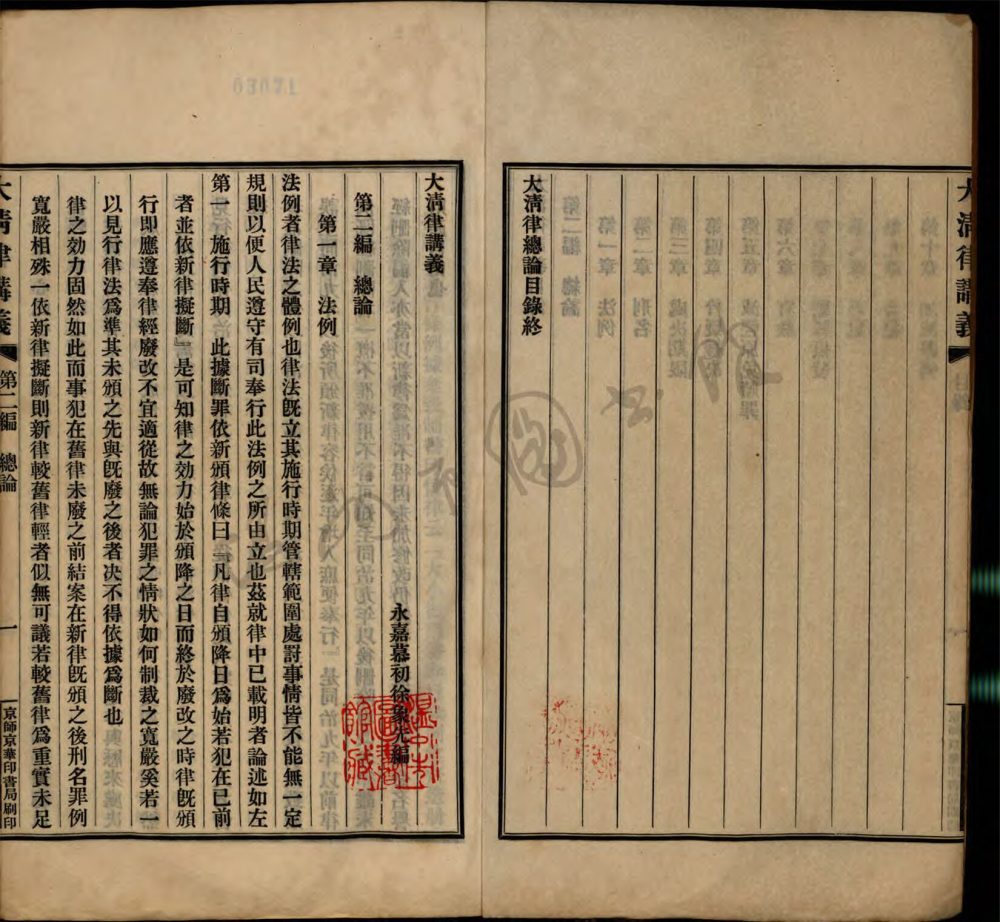 大清律講義
大清律總論目錄終
大清律講義
永嘉慕初徐象先編
第二編　總論
第一章　法例
法例者律法之體例也律法既立其施行時期管轄範圍處罸事情皆不能無一定
規則以便人民遵守有司奉行此法例之所由立也茲就律中已載明者論述如左
第一　施行時期　此據斷罪依新頒律條曰『凡律自頒降日爲始若犯在已前
者並依新律擬斷』是可知律之効力始於頒降之日而終於廢改之時律既頒
行即應遵奉律經廢改不宜適從故無論犯罪之情狀如何制裁之寬嚴奚若一
以見行律法爲準其未頒之先與既廢之後者决不得依據爲斷也
律之効力固然如此而事犯在舊律未廢之前結案在新律既頒之後刑名罪例
寬嚴相殊一依新律擬斷則新律較舊律輕者似無可議若較舊律爲重實未足
大清律講義　第二編　總論　一　京師京華印書局刷印